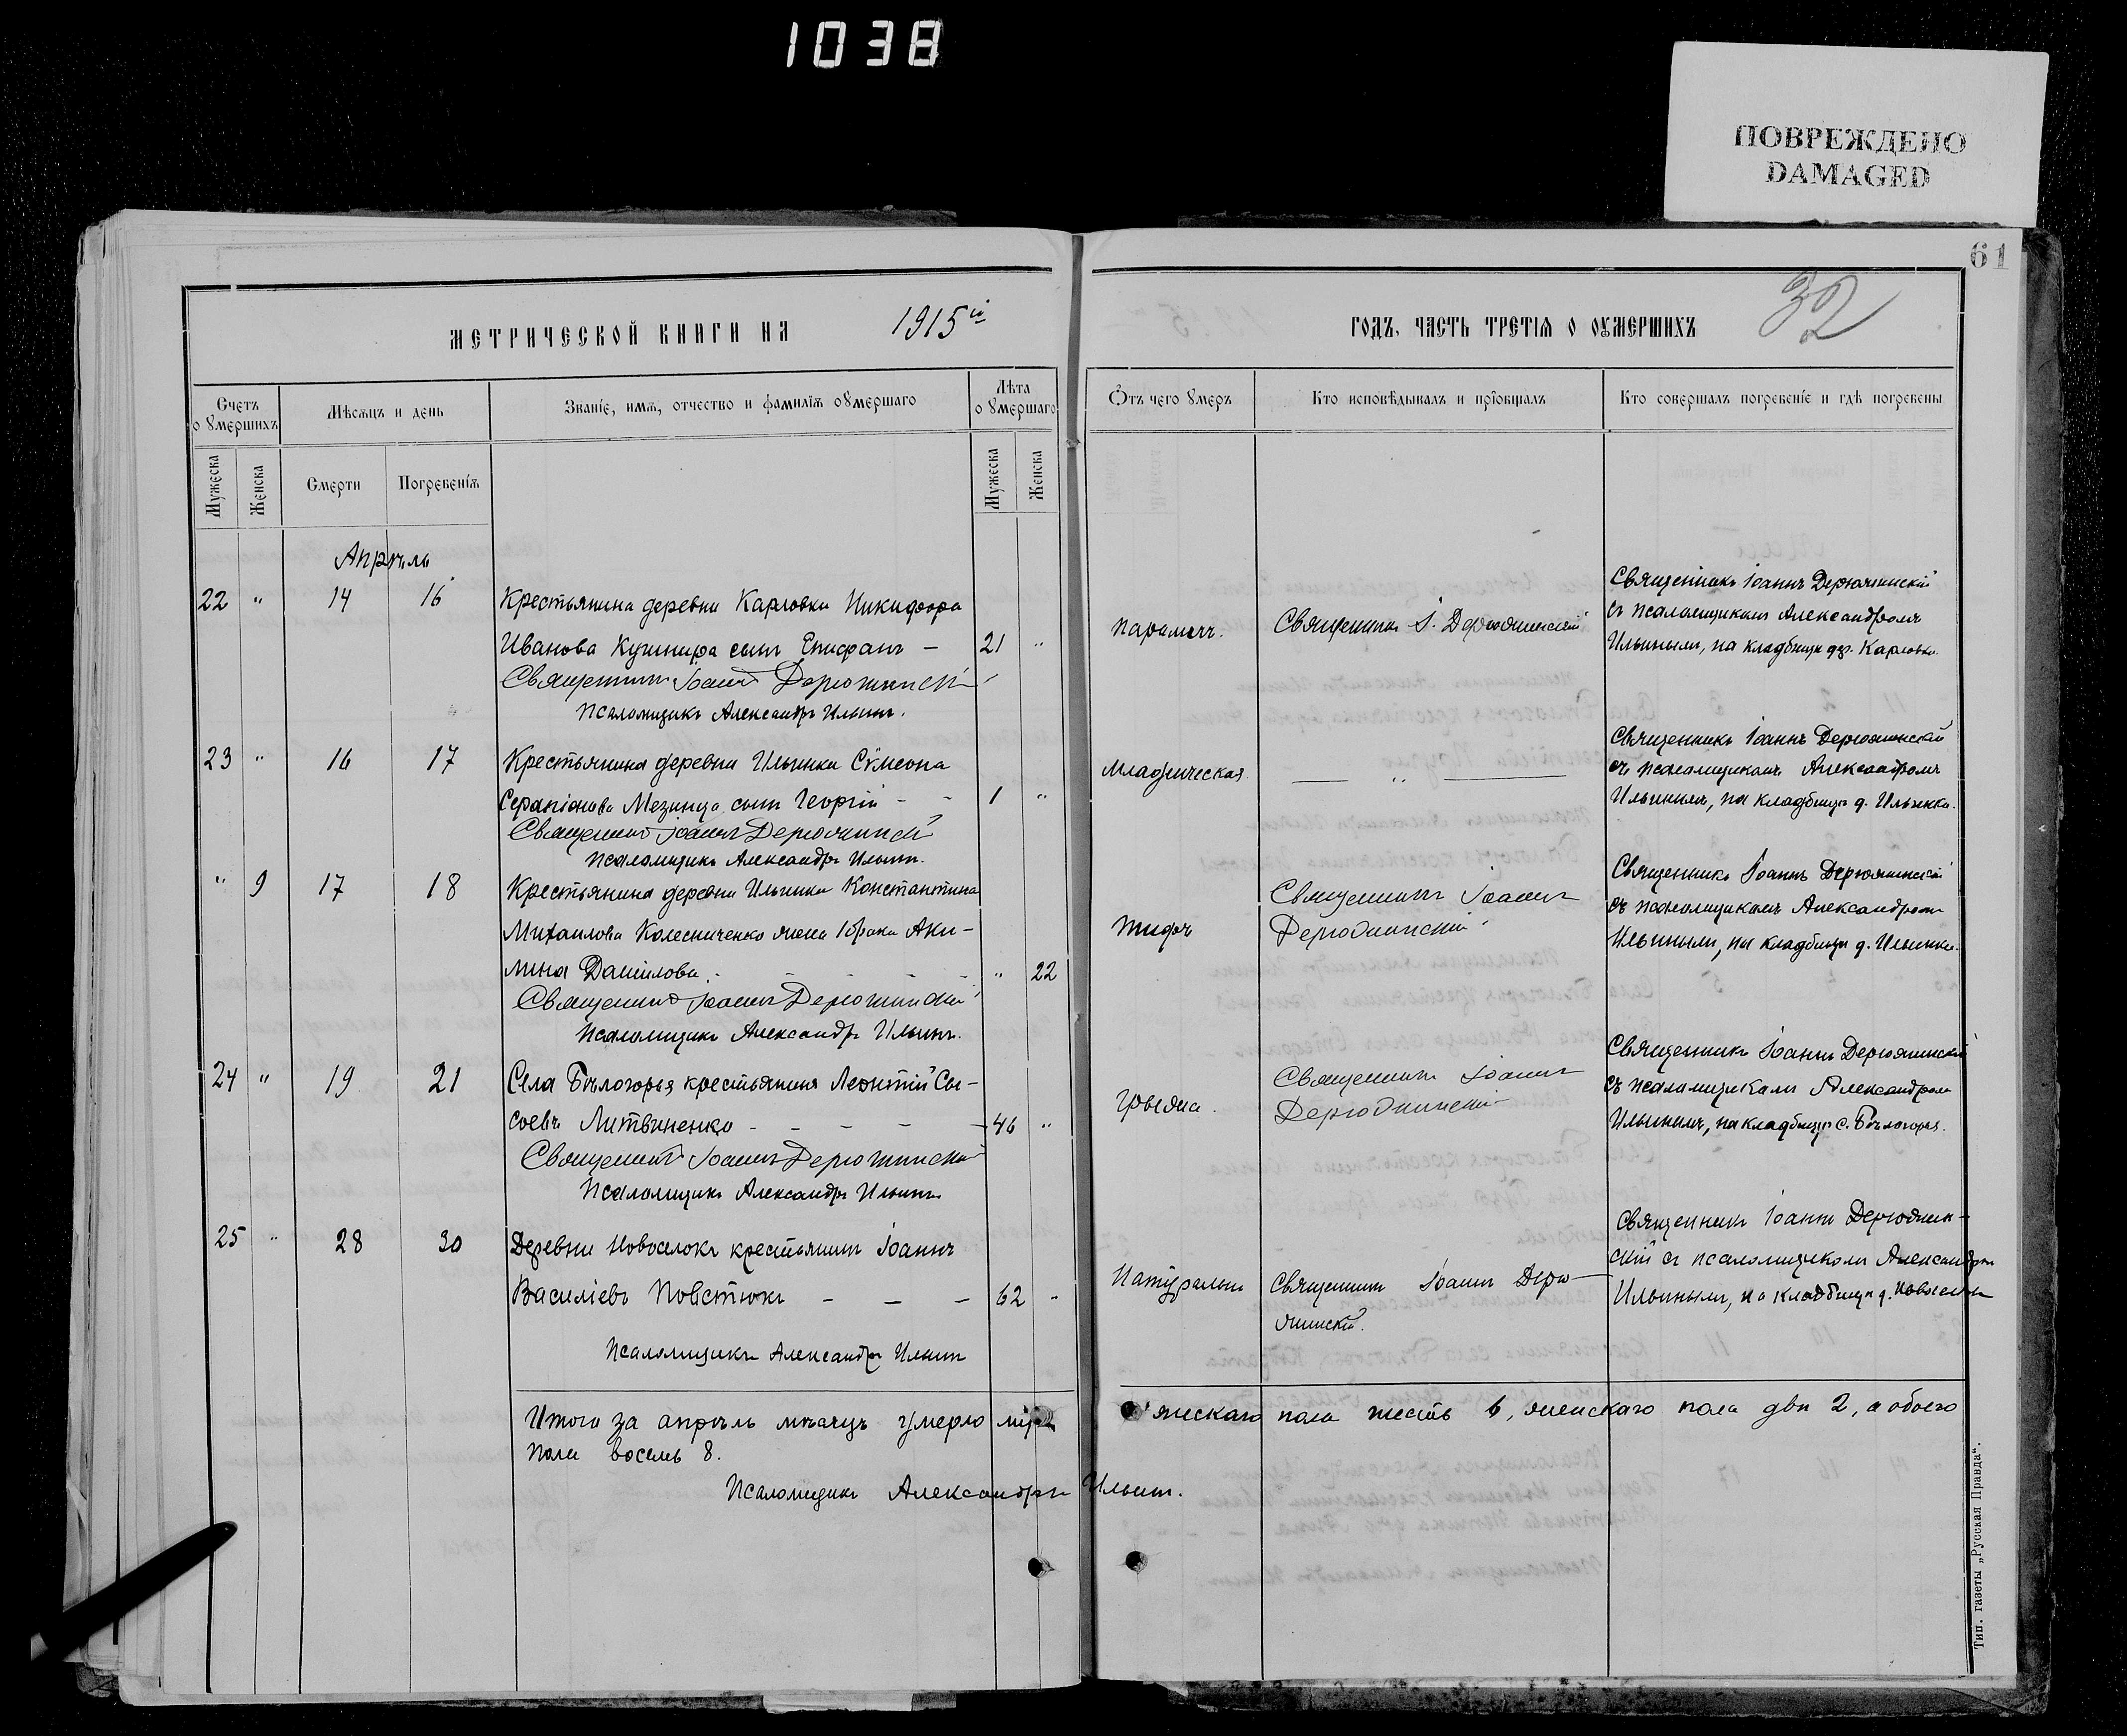 1038
ПОВРЕЖДЕНО
DAMAGED
61
32
МЕТРИЧЕСКОЙ КНИГИ НА 1915й
ГОДЪ, ЧАСТЬ ТРЕТІѦ О ОУМЕРШИХЪ
Счетъ о Умершихъ
Мѣсяцъ и день
Званіе, имя, отчество и фамилія оумершаго
Лѣта оумершаго
Мужеска
Женска
Смерти
Погребенія
Мужеска
Женска
Отъ чего умеръ
Кто исповѣдывалъ и пріобщалъ
Кто совершалъ погребеніе и гдѣ погребены
Апрѣль
22 " 14 16 Крестьянина деревни Карловки Никифора
Иванова Кушнира сынъ Епифанъ - 21 "
Священникъ Іоаннъ Дерюжинскій
Псаломщикъ Александръ Ильинъ.
Священникъ І. Дерюжинскій
Священникъ Іоаннъ Дерюжинскій
съ псаломщикомъ Александромъ
Ильинымъ, на кладбищѣ дер. Карловки.
23 " 16 17 Крестьянина деревни Ильинки Сѵмеона
Серапіонова Мезинца сынъ Георгій - - 1 "
Священникъ Іоаннъ Дерюжинскій
Псаломщикъ Александръ Ильинъ.
Младенческая
"
Священникъ Іоаннъ Дерюжинскій
съ псаломщикомъ Александромъ
Ильинымъ, на кладбищѣ д. Ильинки.
" 9 17 18 Крестьянина деревни Ильинки Константина
Михаилова Колесниченко жена 1 брака Аки-
лина Даніилова. - - - - " 22
Священникъ Іоаннъ Дерюжинскій
Псаломщикъ Александръ Ильинъ.
Тифъ
Священникъ Іоаннъ
Дерюжинскій
Священникъ Іоаннъ Дерюжинскій
съ псаломщикомъ Александромъ
Ильинымъ, на кладбищѣ д. Ильинки.
24 " 19 21 Села Бѣлогорья крестьянинъ Леонтій Сы-
соевъ Литвиненко - - - - - 46 "
Священникъ Іоаннъ Дерюжинскій
Псаломщикъ Александръ Ильинъ
Грыжа.
Священникъ Іоаннъ
Дерюжинскій
Священникъ Іоаннъ Дерюжинскій
съ псаломщикомъ Александромъ
Ильинымъ, на кладбищѣ с. Бѣлогорья.
25 " 28 30 Деревни Новоселокъ крестьянинъ Іоаннъ
Василіевъ Повстюкъ - - - 62 "
Псаломщикъ Александръ Ильинъ
Натурально
Священникъ Іоаннъ Дерю-
жинскій.
Священникъ Іоаннъ Дерюжин-
скій съ псаломщикомъ Александромъ
Ильинымъ, на кладбищѣ д. Новоселокъ
Итого за апрѣль мѣсяцъ умерло мужескаго пола шесть 6, женскаго пола двѣ 2, а обоего
пола восемь 8.
Псаломщикъ Александръ Ильинъ.
Тип. газеты „Русская Правда“.